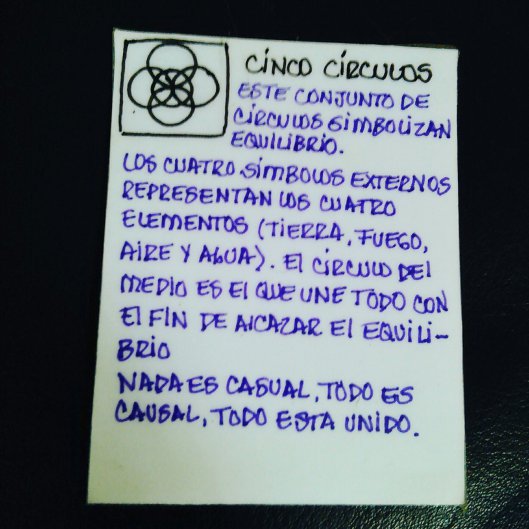 CINCO CÍRCULOS
ESTE CONJUNTO DE
CÍRCULOS SIMBOLIZAN
EQUILIBRIO.
LOS CUATRO SÍMBOLOS EXTERNOS
REPRESENTAN LOS CUATRO
ELEMENTOS (TIERRA, FUEGO,
AIRE Y AGUA). El CÍRCULO DEl
MEDIO ES El QUE UNE TODO CON
El FIN DE AlCAZAR El EQUILI-
BRIO
NADA ES CASUAL, TODO ES
CAUSAL, TODO ESTA UNIDO.